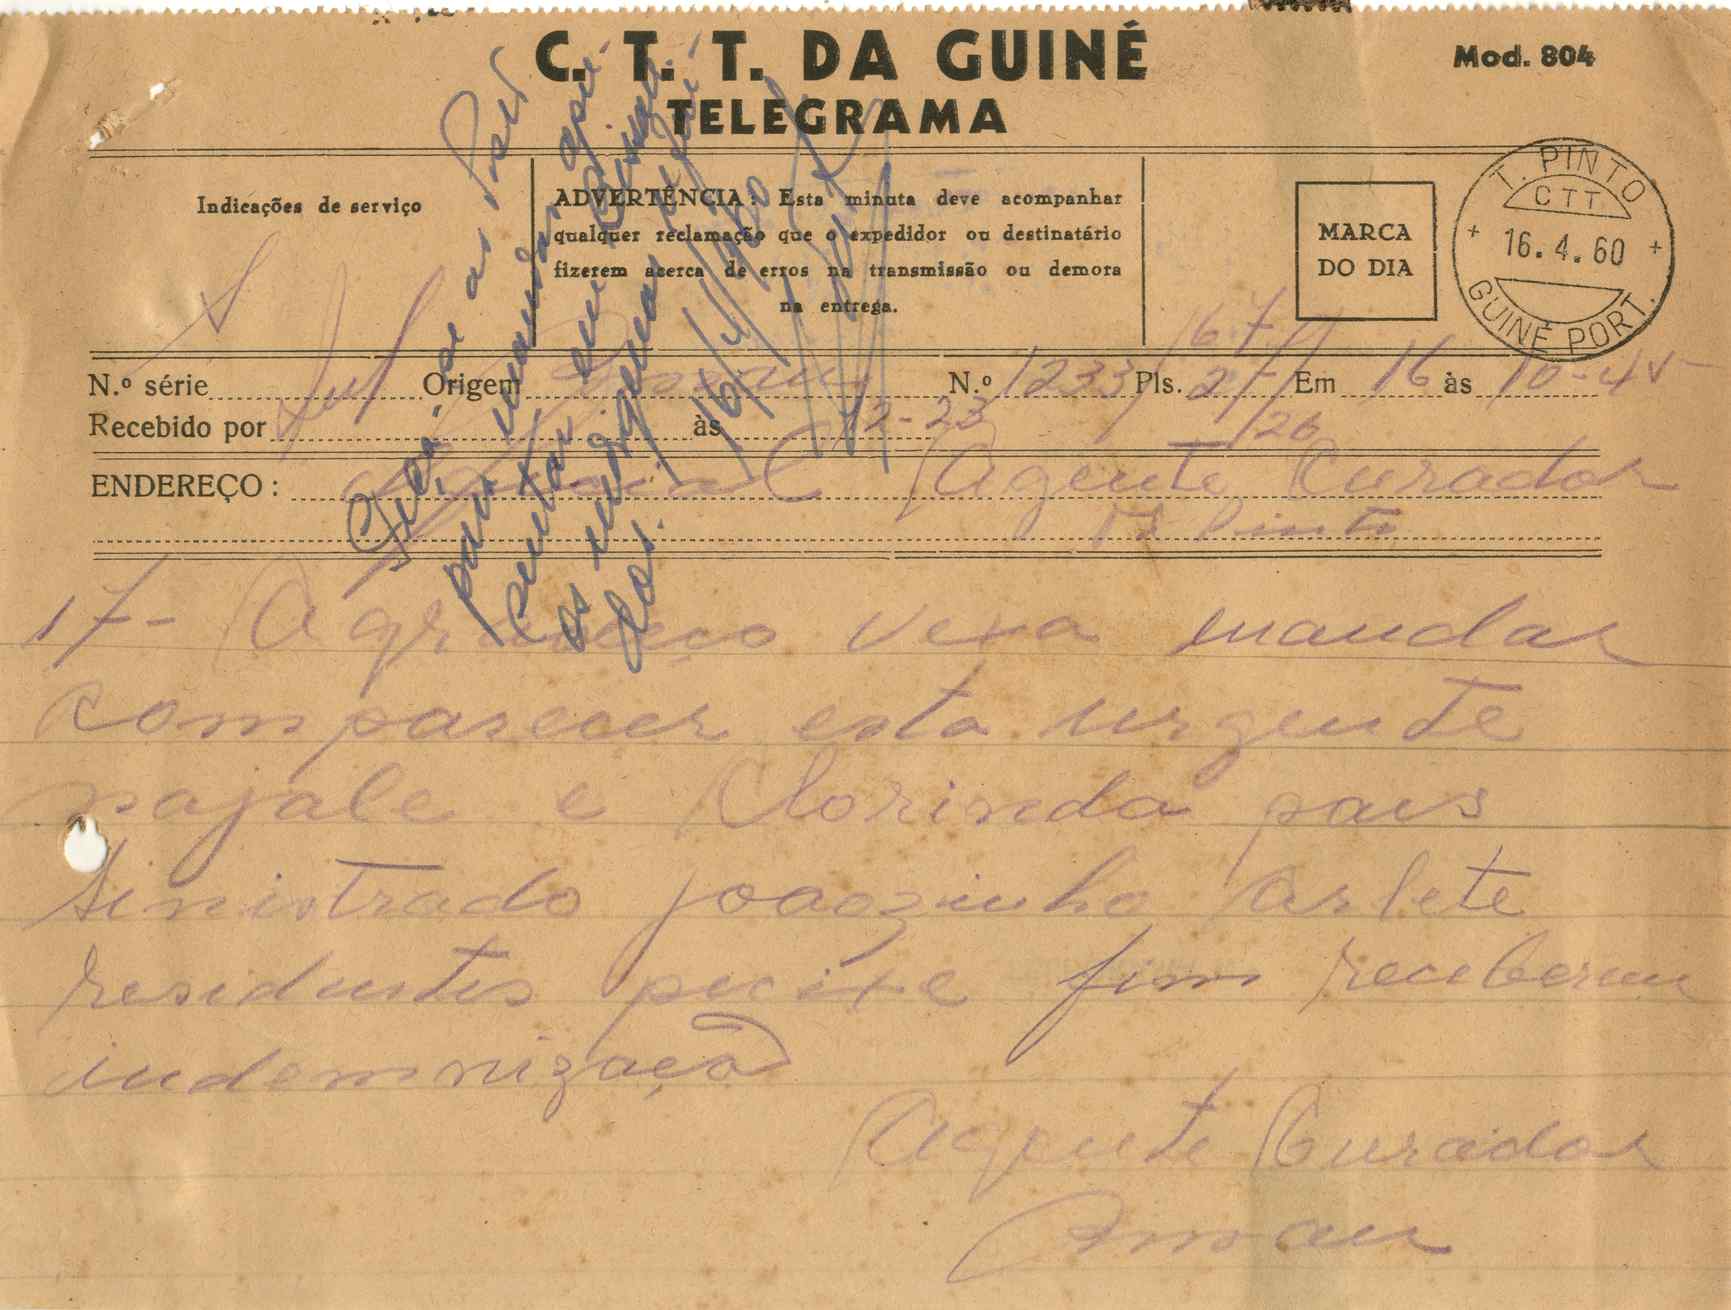 C. T. T. DA GUINÉ
TELEGRAMA
Mod. 804
Indicações de serviço
ADVERTÊNCIA: Esta minuta deve acompanhar
qualquer reclamação que o expedidor ou destinatário
fizerem acerca de erros na transmissão ou demora
na entrega.
MARCA
DO DIA
T. PINTO
CTT
16.4.60
GUINÉ PORT.
S
67
N.º série Origem Bissau N.º 1233 Pls. 27/26 Em 16 às 10-45
Recebido por às 12-23
ENDEREÇO: Agente Curador
T. Pinto
17- Agradeço vexa mandar
comparecer esta urgente
najale e Clorinda pais
sinistrado joaozinho arlete
residentes pecixe fim receberem
indemnização
Agente Curador
Bissau
para mandar
os indígenas
16/4/960